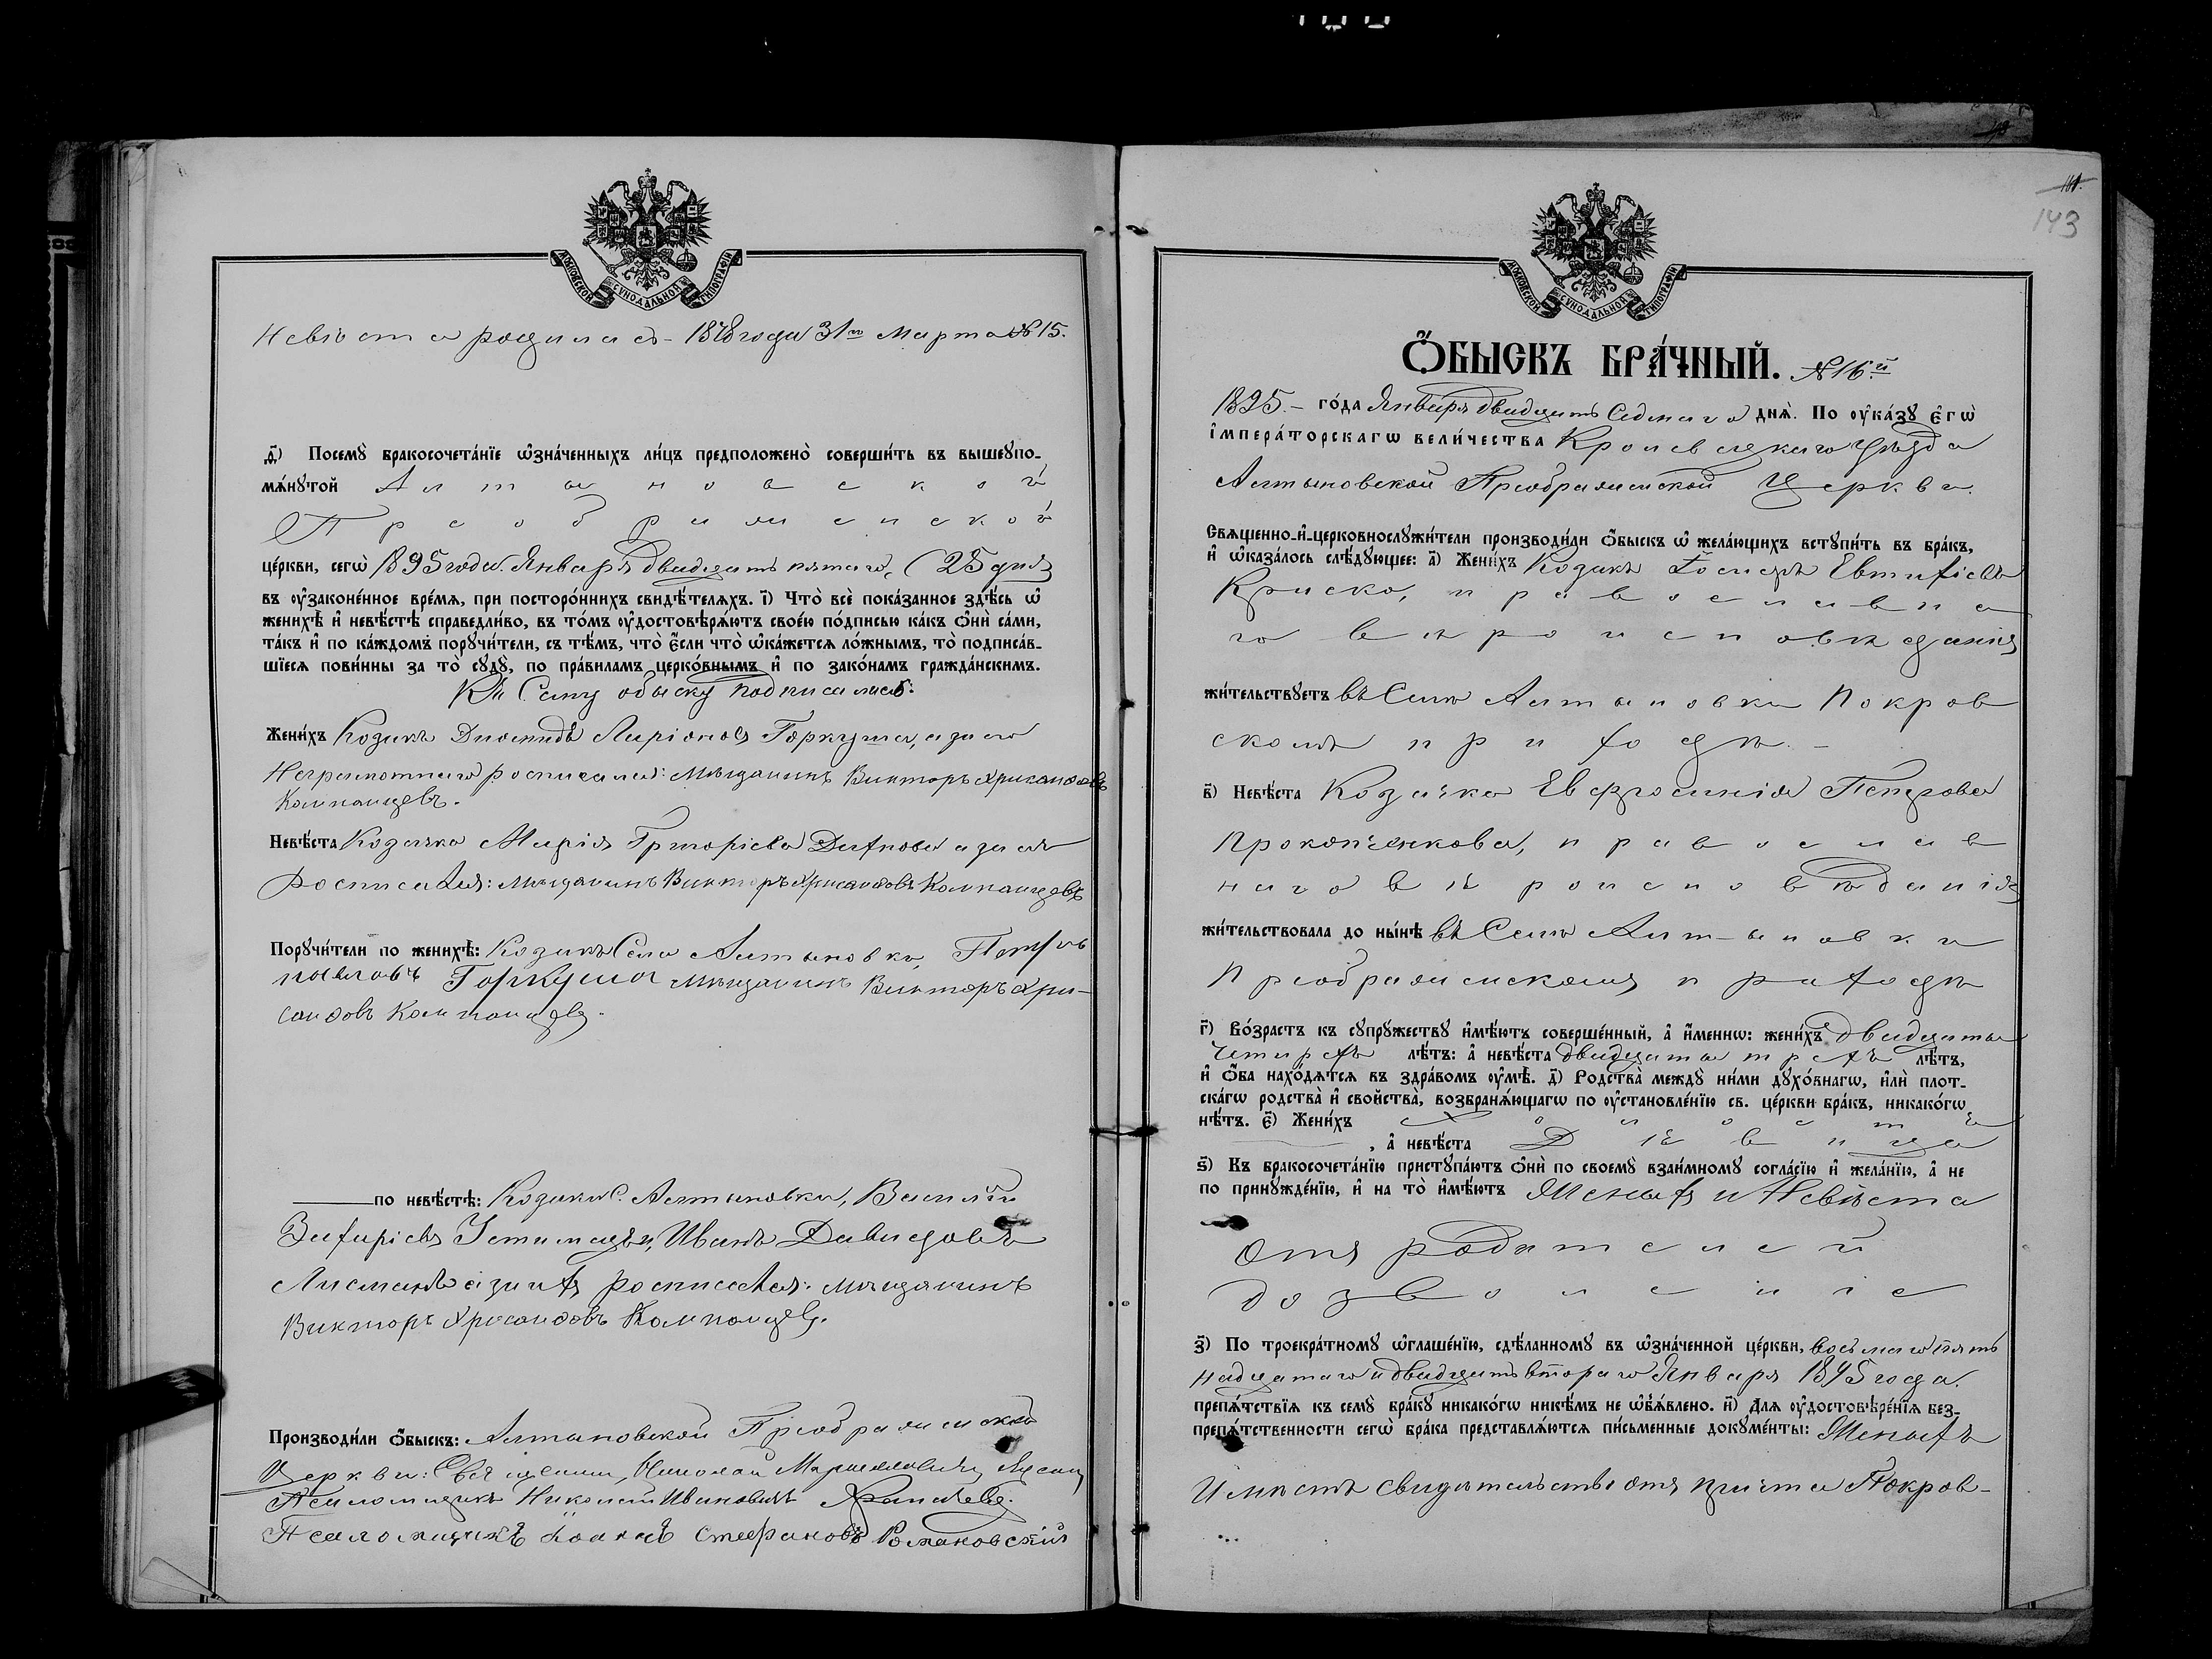 МОСКОВСКОЙ СУНОДАЛЬНОЙ ТИПОГРАФІИ
Невѣста родилась - 1878 года 31го Марта № 15.
д҃і) Посемꙋ̀ бракосочета́нїе ѡ҆зна́ченныхъ ли́цъ предположено̀ соверши́ть въ вышеꙋпо-
мѧ́нꙋтой Алтыновской
Преображенской
це́ркви, сегѡ̀ 1895 года. Января двадцать пятаго, (25 дня)
въ ᲂу҆законе́нное вре́мѧ, при посторо́ннихъ свидѣ́телѧхъ. і҃) Что̀ всѐ пока́занное здѣ́сь ѡ҆
женихѣ̀ и҆ невѣ́стѣ справедли́во, въ то́мъ ᲂу҆достовѣрѧ́ютъ свое́ю по́дписью ка́къ ѻ҆нѝ са́ми,
та́къ и҆ по ка́ждомъ порꙋчи́тели, съ тѣ́мъ, что̀ є҆́сли что̀ ѡ҆ка́жетсѧ ло́жнымъ, то̀ подписа́в-
шїесѧ пови́нны за то̀ сꙋдꙋ̀, по пра́виламъ церко́внымъ и҆ по зако́намъ гражда́нскимъ.
Къ Сему обыску подписались:
Жени́хъ Козакъ Диомидъ Ларіоновъ Горкуша, а за его
Неграмотнаго росписался: мѣщанинъ Викторъ Хрисанфовъ
Компанцевъ.
Невѣ́ста Козачка Марія Григорієва Дахнова а за ея
росписался: мѣщанинъ Викторъ Хрисанфовъ Компанцевъ
Порꙋчи́тели по женихѣ̀: Козакъ Села Алтыновки, Петръ
павловъ Горкуша мѣщанинъ Викторъ Хри-
санфовъ Компанцевъ.
по невѣ́стѣ: Козаки С. Алтыновки, Василій
Захаріевъ Устимецъ, Иванъ Давидовъ
Лисманъ а за ихъ росписался: мѣщанинъ
Викторъ Хрисанфовъ Компанцевъ.
Производи́ли ѻ҆́быскъ: Алтыновской Преображенской
Церкви: Священникъ Николай
Псаломщикъ Николай Ивановичъ
Псаломщикъ Іоаннъ Стефановъ Романовскій
143
МОСКОВСКОЙ СУНОДАЛЬНОЙ ТИПОГРАФІИ
Ѻ҆́БЫСКЪ БРА́ЧНЫЙ. № 16й
1895.- го́да Января двадцать Седмаго днѧ̀. По ᲂу҆ка́зꙋ є҆гѡ̀
і҆мпера́торскагѡ вели́чества Кролевецкаго Уѣзда
Алтыновской Преображенской Церкви.
Свѧще́нно-и҆-церковнослꙋжи́тели производи́ли ѻ҆́быскъ ѡ҆ жела́ющихъ встꙋпи́ть въ бра́къ,
и҆ ѡ҆каза́лось слѣ́дꙋющее: а҃) Жени́хъ Козакъ Іосифъ Евтихіевъ
Криско, православна
го вѣроисповѣданія
жи́тельствꙋетъ въ Селѣ Алтыновки Покров
скомъ приходѣ. -
в҃) Невѣ́ста Козачка Евфросинія Петрова
Прокопченкова, православ
наго вѣроисповѣданія
жи́тельствовала до ны́нѣ въ Селѣ Алтыновки
Преображенскомъ приходѣ
г҃) Во́зрастъ къ сꙋпрꙋ́жествꙋ и҆мѣ́ютъ соверше́нный, а҆ и҆́меннѡ: жени́хъ двадцать
четырехъ лѣ́тъ: а҆ невѣ́ста двадцать трехъ лѣ́тъ,
и҆ ѻ҆́ба нахо́дѧтсѧ въ здра́вомъ ᲂу҆мѣ̀. д҃) Родства̀ междꙋ̀ ни́ми дꙋхо́внагѡ, и҆лѝ плот-
ска́гѡ родства̀ и҆ свойства̀, возбранѧ́ющагѡ по ᲂу҆становле́нїю св. це́ркви бра́къ, никако́гѡ
нѣ́тъ. є҃) Жени́хъ Холостъ
, а҆ невѣ́ста Дѣвица
ѕ҃) Къ бракосочета́нїю пристꙋпа́ютъ ѻ҆нѝ по своемꙋ̀ взаи́мномꙋ согла́сїю и҆ жела́нїю, а҆ не
по принꙋжде́нїю, и҆ на то̀ и҆мѣ́ютъ Женихъ и Невѣста
отъ родителей
дозволеніе
з҃) По троекра́тномꙋ ѡ҆глаше́нїю, сдѣ́ланномꙋ въ ѡ҆зна́ченной це́ркви, восьмаго пять
надцатаго и двадцать втораго Января 1895 года.
препѧ́тствїѧ къ семꙋ̀ бра́кꙋ никако́гѡ никѣ́мъ не ѡ҆б̾ѧ́влено. и҃) Длѧ ᲂу҆достовѣре́нїѧ без-
препѧ́тственности сегѡ̀ бра́ка представлѧ́ютсѧ пи́сьменные докꙋме́нты: Женихъ
Имѣетъ свидѣтельство отъ причта Покров-